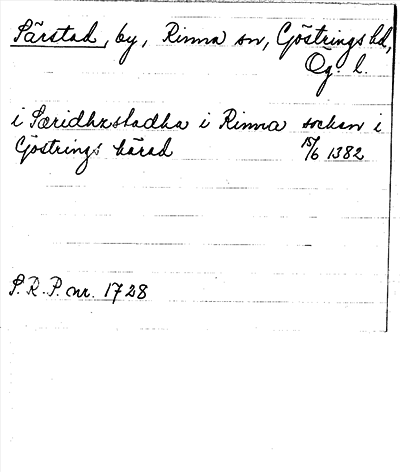 Särstad, by, Rinna sn, Göstrings hd,
Ög. l.
i Særidhzstadha i Rinna sockan i
Göstrings härad 15/6 1382
S.R.P. nr. 1728